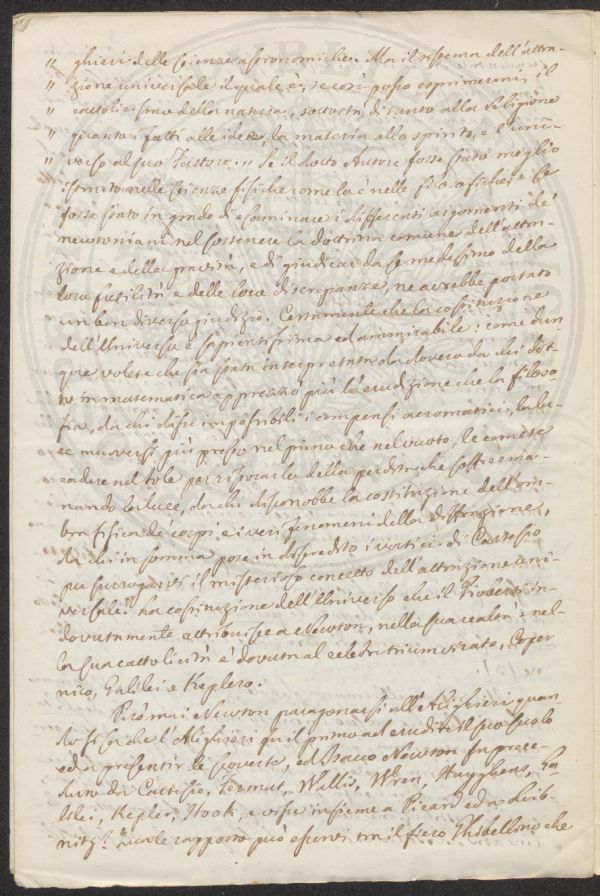 " ghieri delle scienze astronomiche. Ma il sistema dell'attra-
" zione universale il quale è, se così posso esprimermi, il
" cattolicismo della natura, sottostà di tanto alla Religione
" quanto i fatti alle idee, la materia allo spirito, e l'uni-
" verso al suo Fattore. „ Se il dotto Autore fosse stato meglio
istruito nelle scienze fisiche come lo è nelle filosofiche, e se
fosse stato in grado di esaminare i differenti argomenti de'
newtoniani nel sostenere la dottrina comune dell'attra-
zione e della gravità, e di giudicar da se medesimo della
loro futilità e delle loro discrepanze, ne avrebbe portato
un ben diverso giudizio. Certamente che la costituzione
dell'Universo è sapientissima ed ammirabile: come dun-
que volete che sia stata interpretata a dovere da chi dot-
to in matematica apprezzò più l'erudizione che la filoso-
fia, da chi disse impossibili i compensi acromatici, la lu-
ce muoversi più presto nel pieno che nel vuoto, le comete
cadere nel Sole per ristorarlo della perdita che soffre ema-
nando la luce, da chi disconobbe la costituzione dell'om-
bra fisica de' corpi e i veri fenomeni della diffrazione,
da chi in somma pose in dispredito i vortici di Cartesio
per surrogarvi il misterioso concetto dell'attrazione uni-
versale? La costituzione dell'Universo che il Gioberti in-
dovutamente attribuisce a Newton, nella sua realtà e nel-
la sua cattolicità è dovuta al celebre triumvirato, Coper-
nico, Galilei e Keplero.
Può mai Newton paragonarsi all'Alighieri quan-
do si sa che l'Alighieri fu il primo ad erudire il suo secolo
ed a presentir le scoverte, ed Isacco Newton fu prece-
duto da Cartesio, Fermat, Wallis, Wren, Huyghens, Ga-
lilei, Kepler, Hook, e visse insieme a Picard ed a Leib-
nitz? Quale rapporto può esservi tra il fiero Ghibellino che